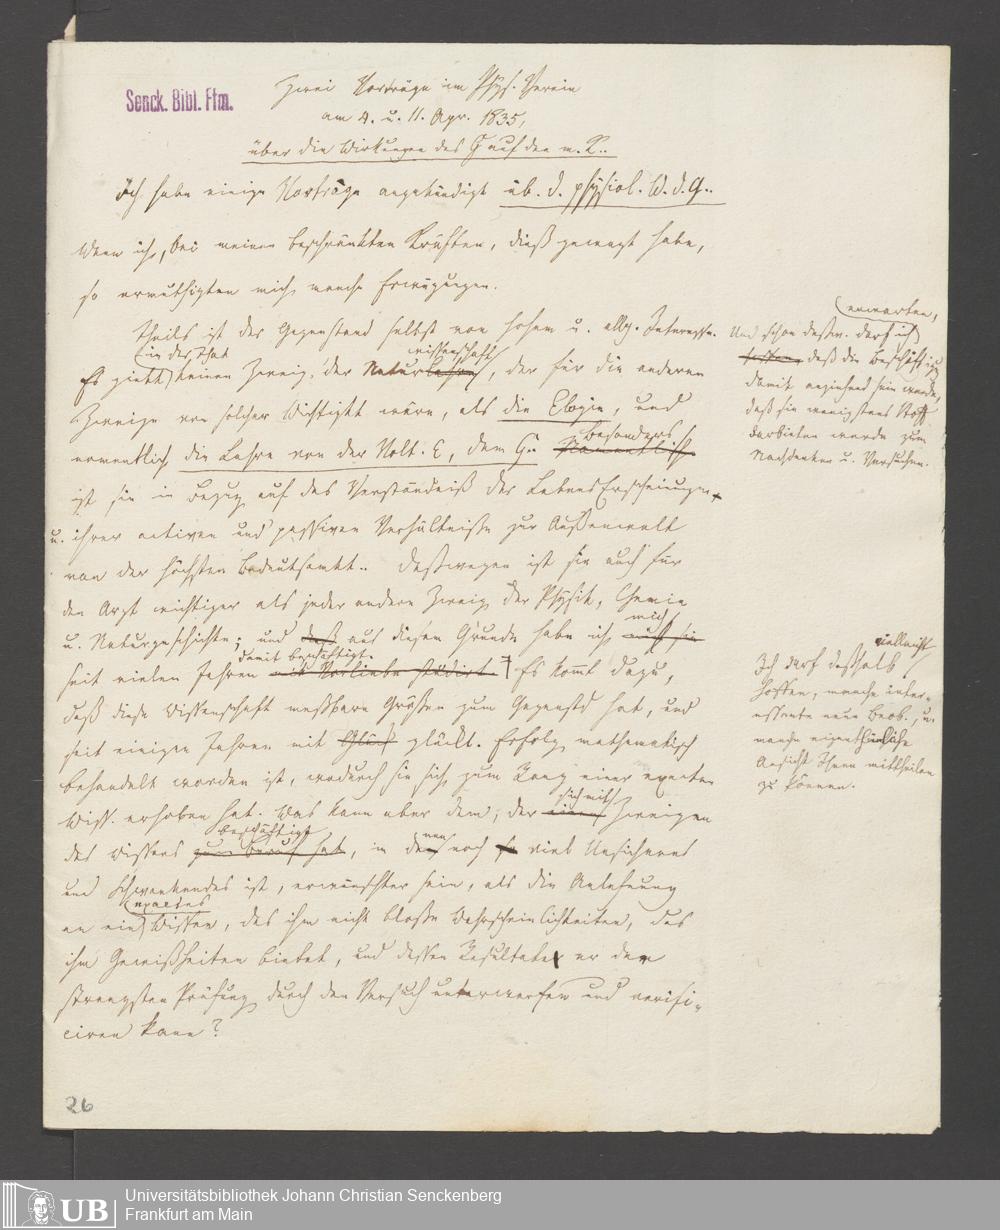 Senck. Bibl. Ffm.
Zwei Vorträge im Phys. Verein
am 4. u. 11. Apr. 1835,
über die Wirkungen des G auf den m. K..
Ich habe einige Vorträge angekündigt üb. d. physiol. W. d. G..
Wenn ich, bei meinen beschränkten Kräften, dieß gewagt habe,
so ermuthigten mich manche Erwägungen.
Theils ist der Gegenstand selbst von hohem u. allg. Interesse.
in der That wissenschaft
Es giebt keinen Zweig der Naturlehre, der für die anderen
Zweige von solcher Wichtigkt wäre, als die Elogie, und
besonders
namentlich die Lehre von der Volt. E, dem G.. Namentlich
ist sie in Bezug auf das Verständniß der Lebens Erscheinungen
u. ihrer activen und passiven Verhältnisse zur Außenwelt
von der höchsten Bedeutsamkt.. Deßwegen ist sie auch für
den Arzt wichtiger als jeder andere Zweig der Physik, Chemie
mich
u. Naturgeschichte; und daß aus diesem Grunde habe ich
damit beschäftigt.
seit vielen Jahren mit Vorliebe studirt. Es kom̅t dazu,
daß diese Wissenschaft meßbare Größen zum Gegenstd hat, und
seit einigen Jahren mit Glück glückl. Erfolg mathematisch
behandelt worden ist, wodurch sie sich zum Rang einer exacten
sich mit
Wiss. erhoben hat. Was kann aber dem, der einem Zweigen
beschäftigt
des Wissens zum Beruf hat, in denen noch so viel Unsicheres
und Schwankendes ist, erwünschter sein, als die Anlehnung
exactes
an ein Wissen, das ihm nicht bloße Wahrscheinlichkeiten, das
ihm Gewißheiten bietet, und dessen Resultate er der
strengsten Prüfung durch den Versuch unterwerfen und verifi-
ciren kann?
erwarten,
Und schon deßw. darf ich
hoffen, daß die Beschäftigg
damit anziehend sein werde,
daß sie wenigstens Stoff
darbieten werde zum
Nachdenken u. Versuchen.
vielleicht
Ich darf deßhalb
hoffen, manche inter-
essante neue Beob., u.
manche eigenthümliche
Ansicht Ihnen mittheilen
zu können.
26
UB
Universitätsbibliothek Johann Christian Senckenberg
Frankfurt am Main